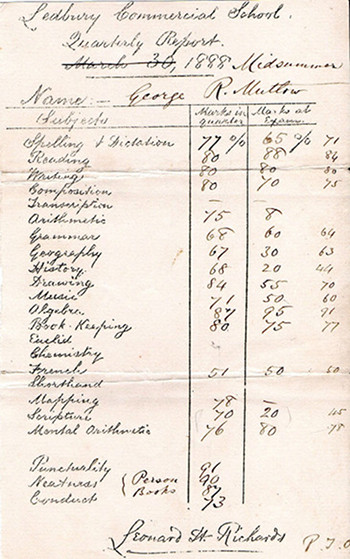 Ledbury Commercial School.
Quarterly Report.
March 30, 1888 Midsummer
Name:- George R. Mutlow
Subjects Marks in quarter Marks at Exam.
Spelling & Dictation 77 % 65 % 71
Reading 80 88 84
Writing 80 80 80
Composition 80 70 75
Transcription – –
Arithmetic 75 8
Grammar 68 60 64
Geography 67 30 63
History. 68 20 44
Drawing 84 55 70
Music 71 50 60
Algebra. 87 95 91
Book-Keeping 80 75 77
Euclid
Chemistry
French 51 50 50
Shorthand
Mapping 78 –
Scripture 70 20 45
Mental Arithmetic 76 80 78
Punctuality 91
Neatness { Person 90
Books 87
Conduct 73
Leonard H. Richards P.T.O